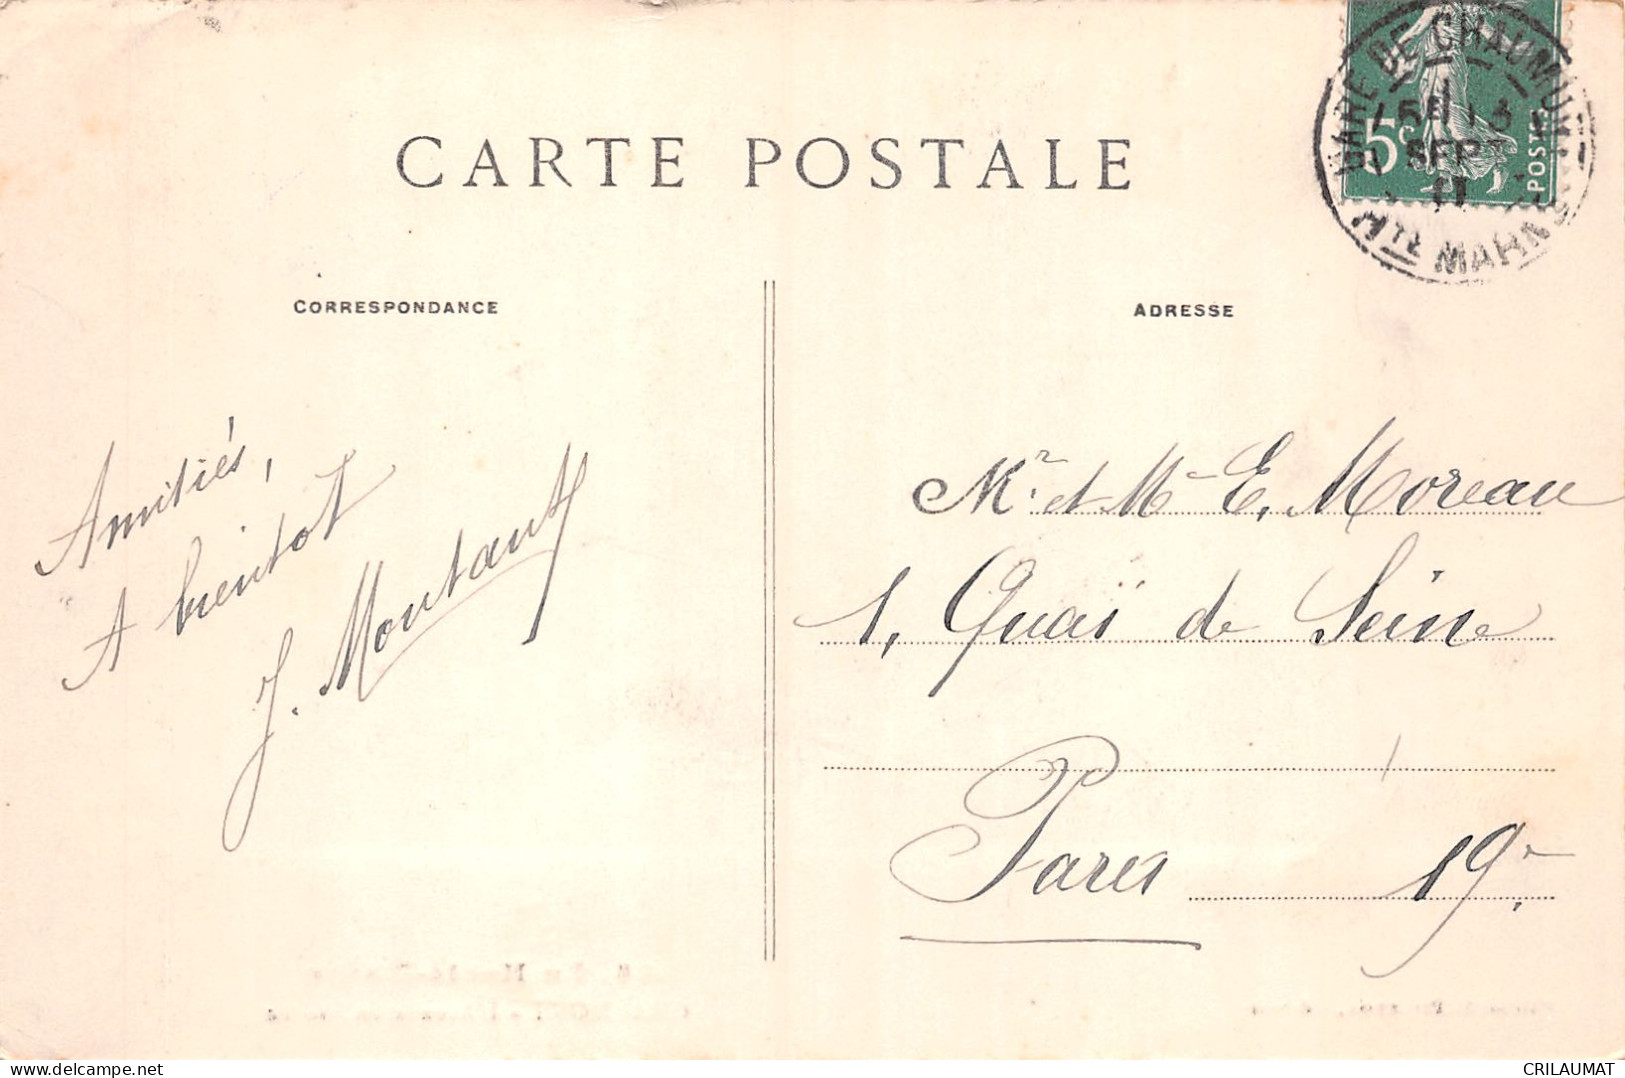 CARTE POSTALE
CORRESPONDANCE
ADRESSE
GARE DE CHAUMONT
SEPT
11
HTE MARNE
5c
POSTES
Amitiés,
A bientot
J. Montant
Mr et Me E. Moreau
1, Quai de Seine
Paris 19e
www.delcampe.net
CRILAUMAT